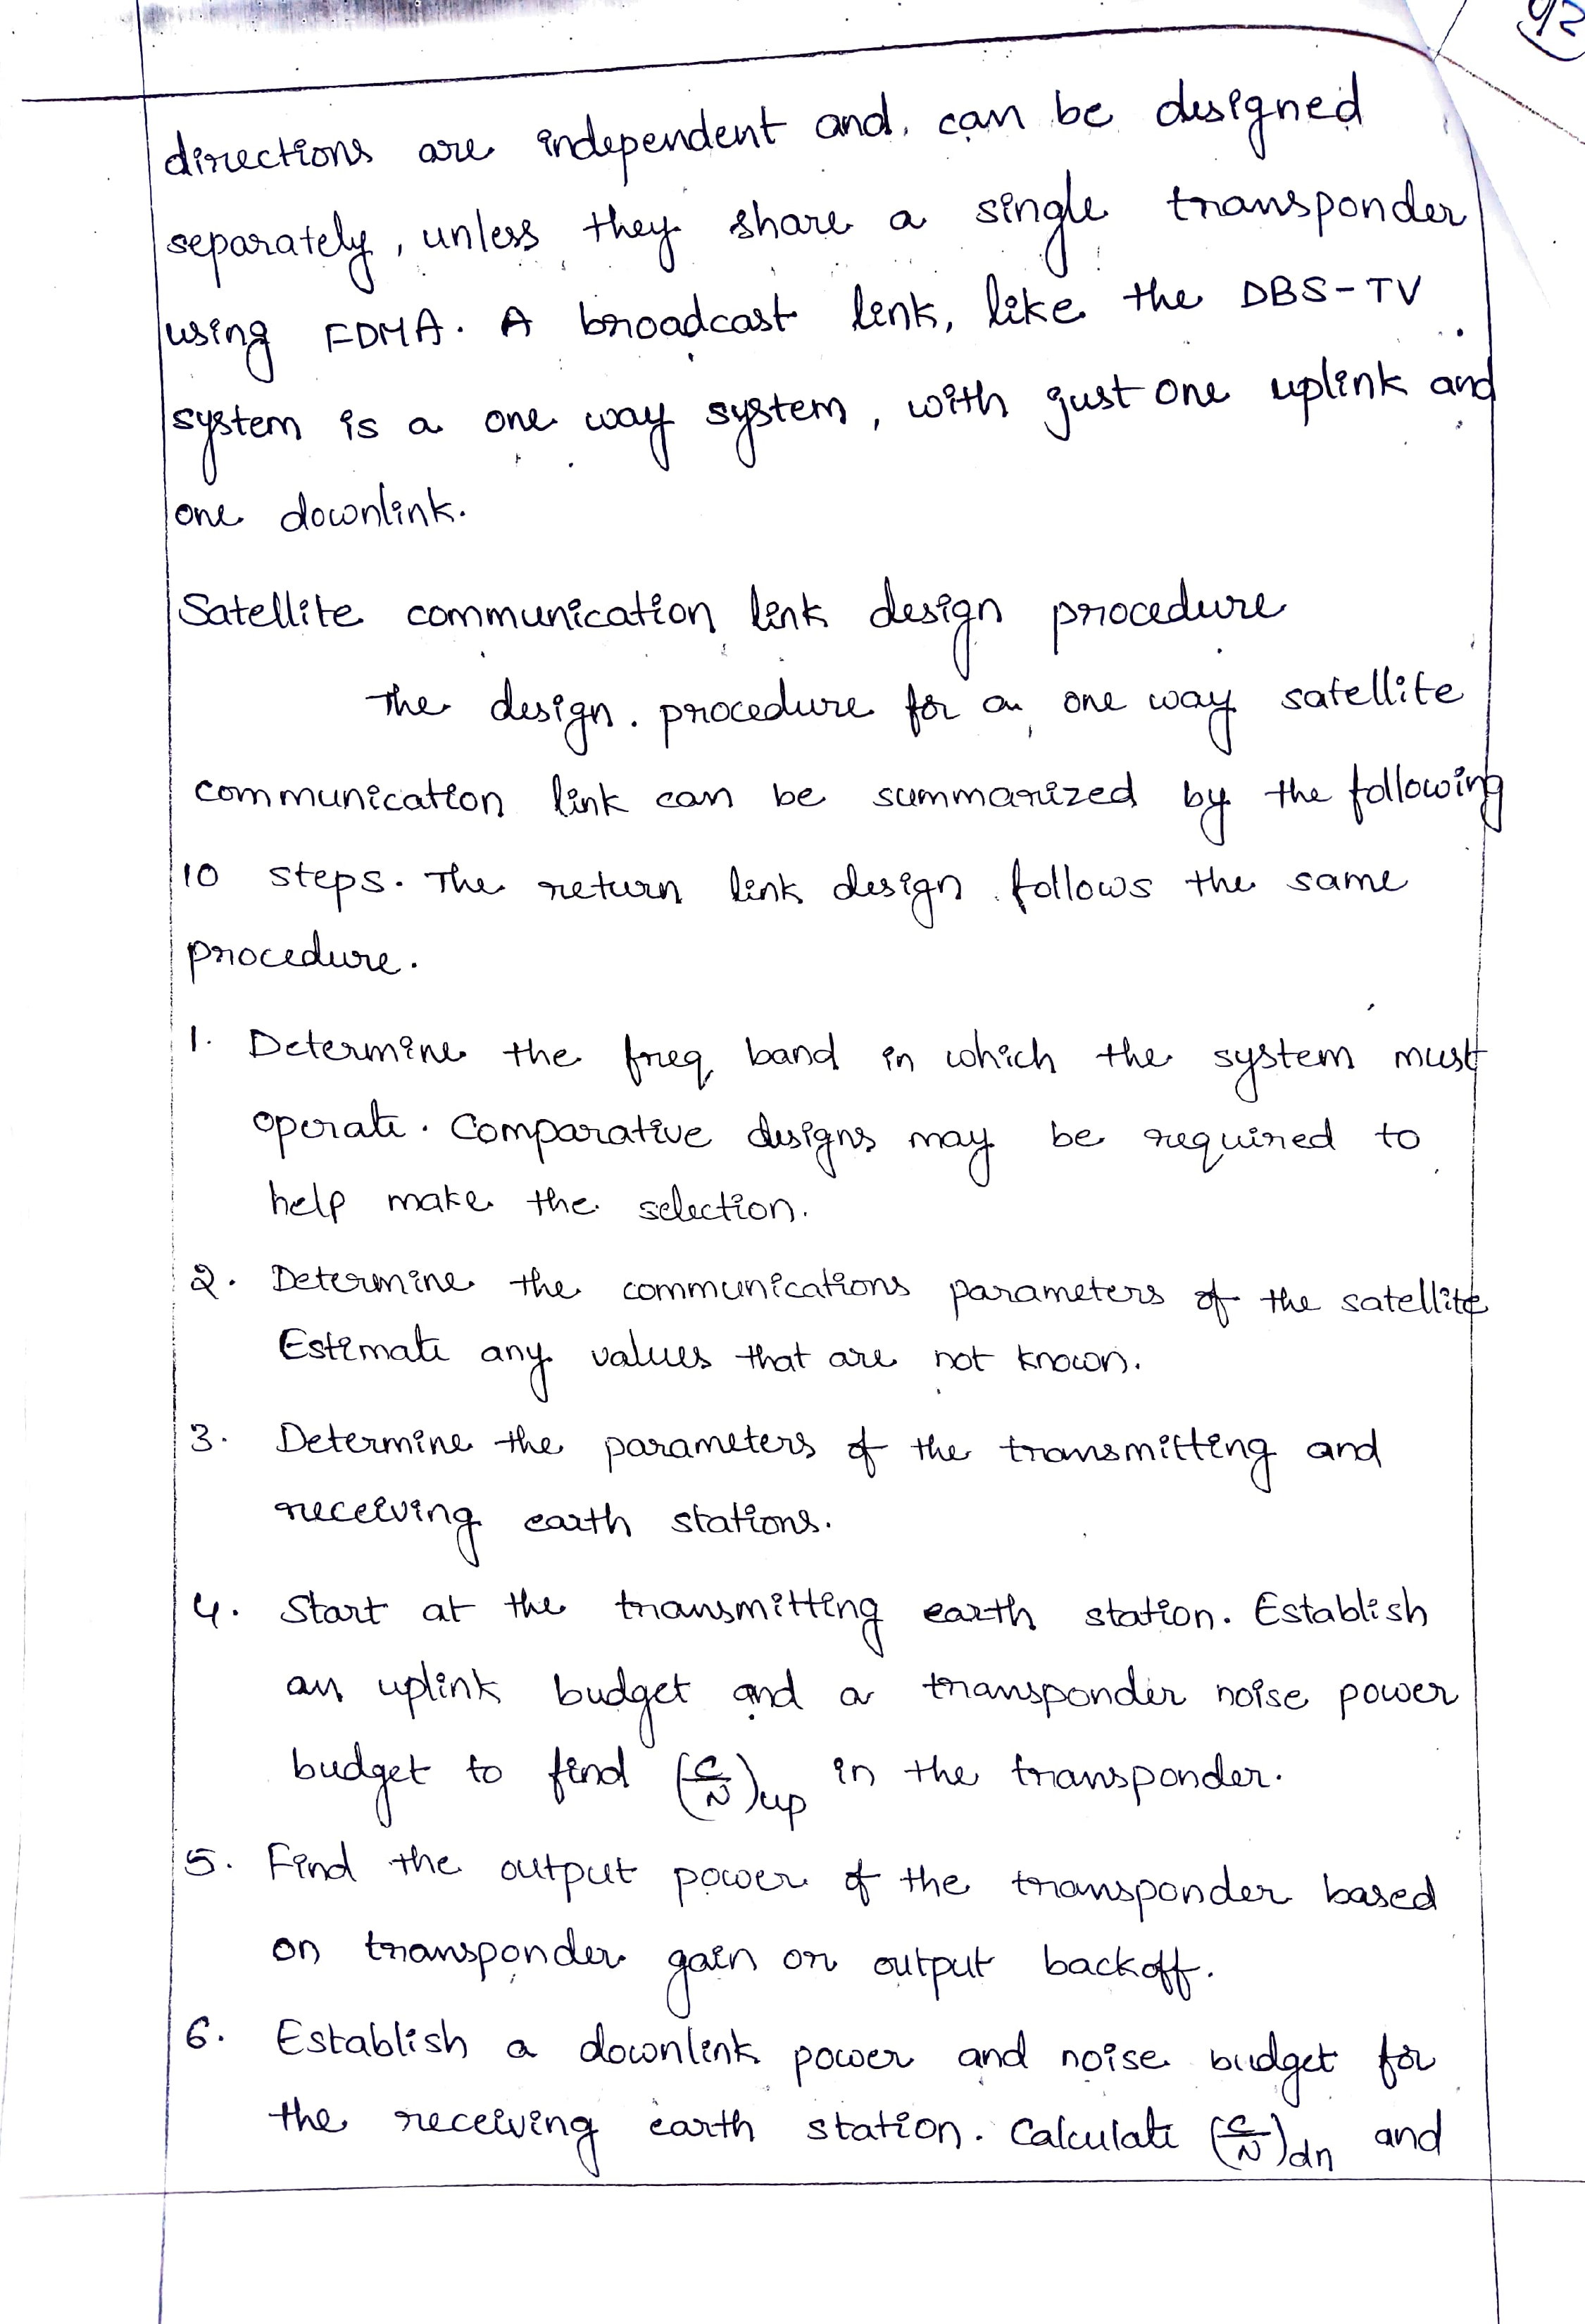 92
directions are independent and can be designed
separately, unless they share a single transponder
using FDMA. A broadcast link, like the DBS-TV
system is a one way system, with just one uplink and
one downlink.
Satellite communication link design procedure
The design procedure for an one way satellite
communication link can be summarized by the following
10 steps. The return link design follows the same
procedure.
1. Determine the freq band in which the system must
operate. Comparative designs may be required to
help make the selection.
2. Determine the communications parameters of the satellite
Estimate any values that are not known.
3. Determine the parameters of the transmitting and
receiving earth stations.
4. Start at the transmitting earth station. Establish
an uplink budget and a transponder noise power
budget to find (C/N)up in the transponder.
5. Find the output power of the transponder based
on transponder gain or output backoff.
6. Establish a downlink power and noise budget for
the receiving earth station. Calculate (C/N)dn and